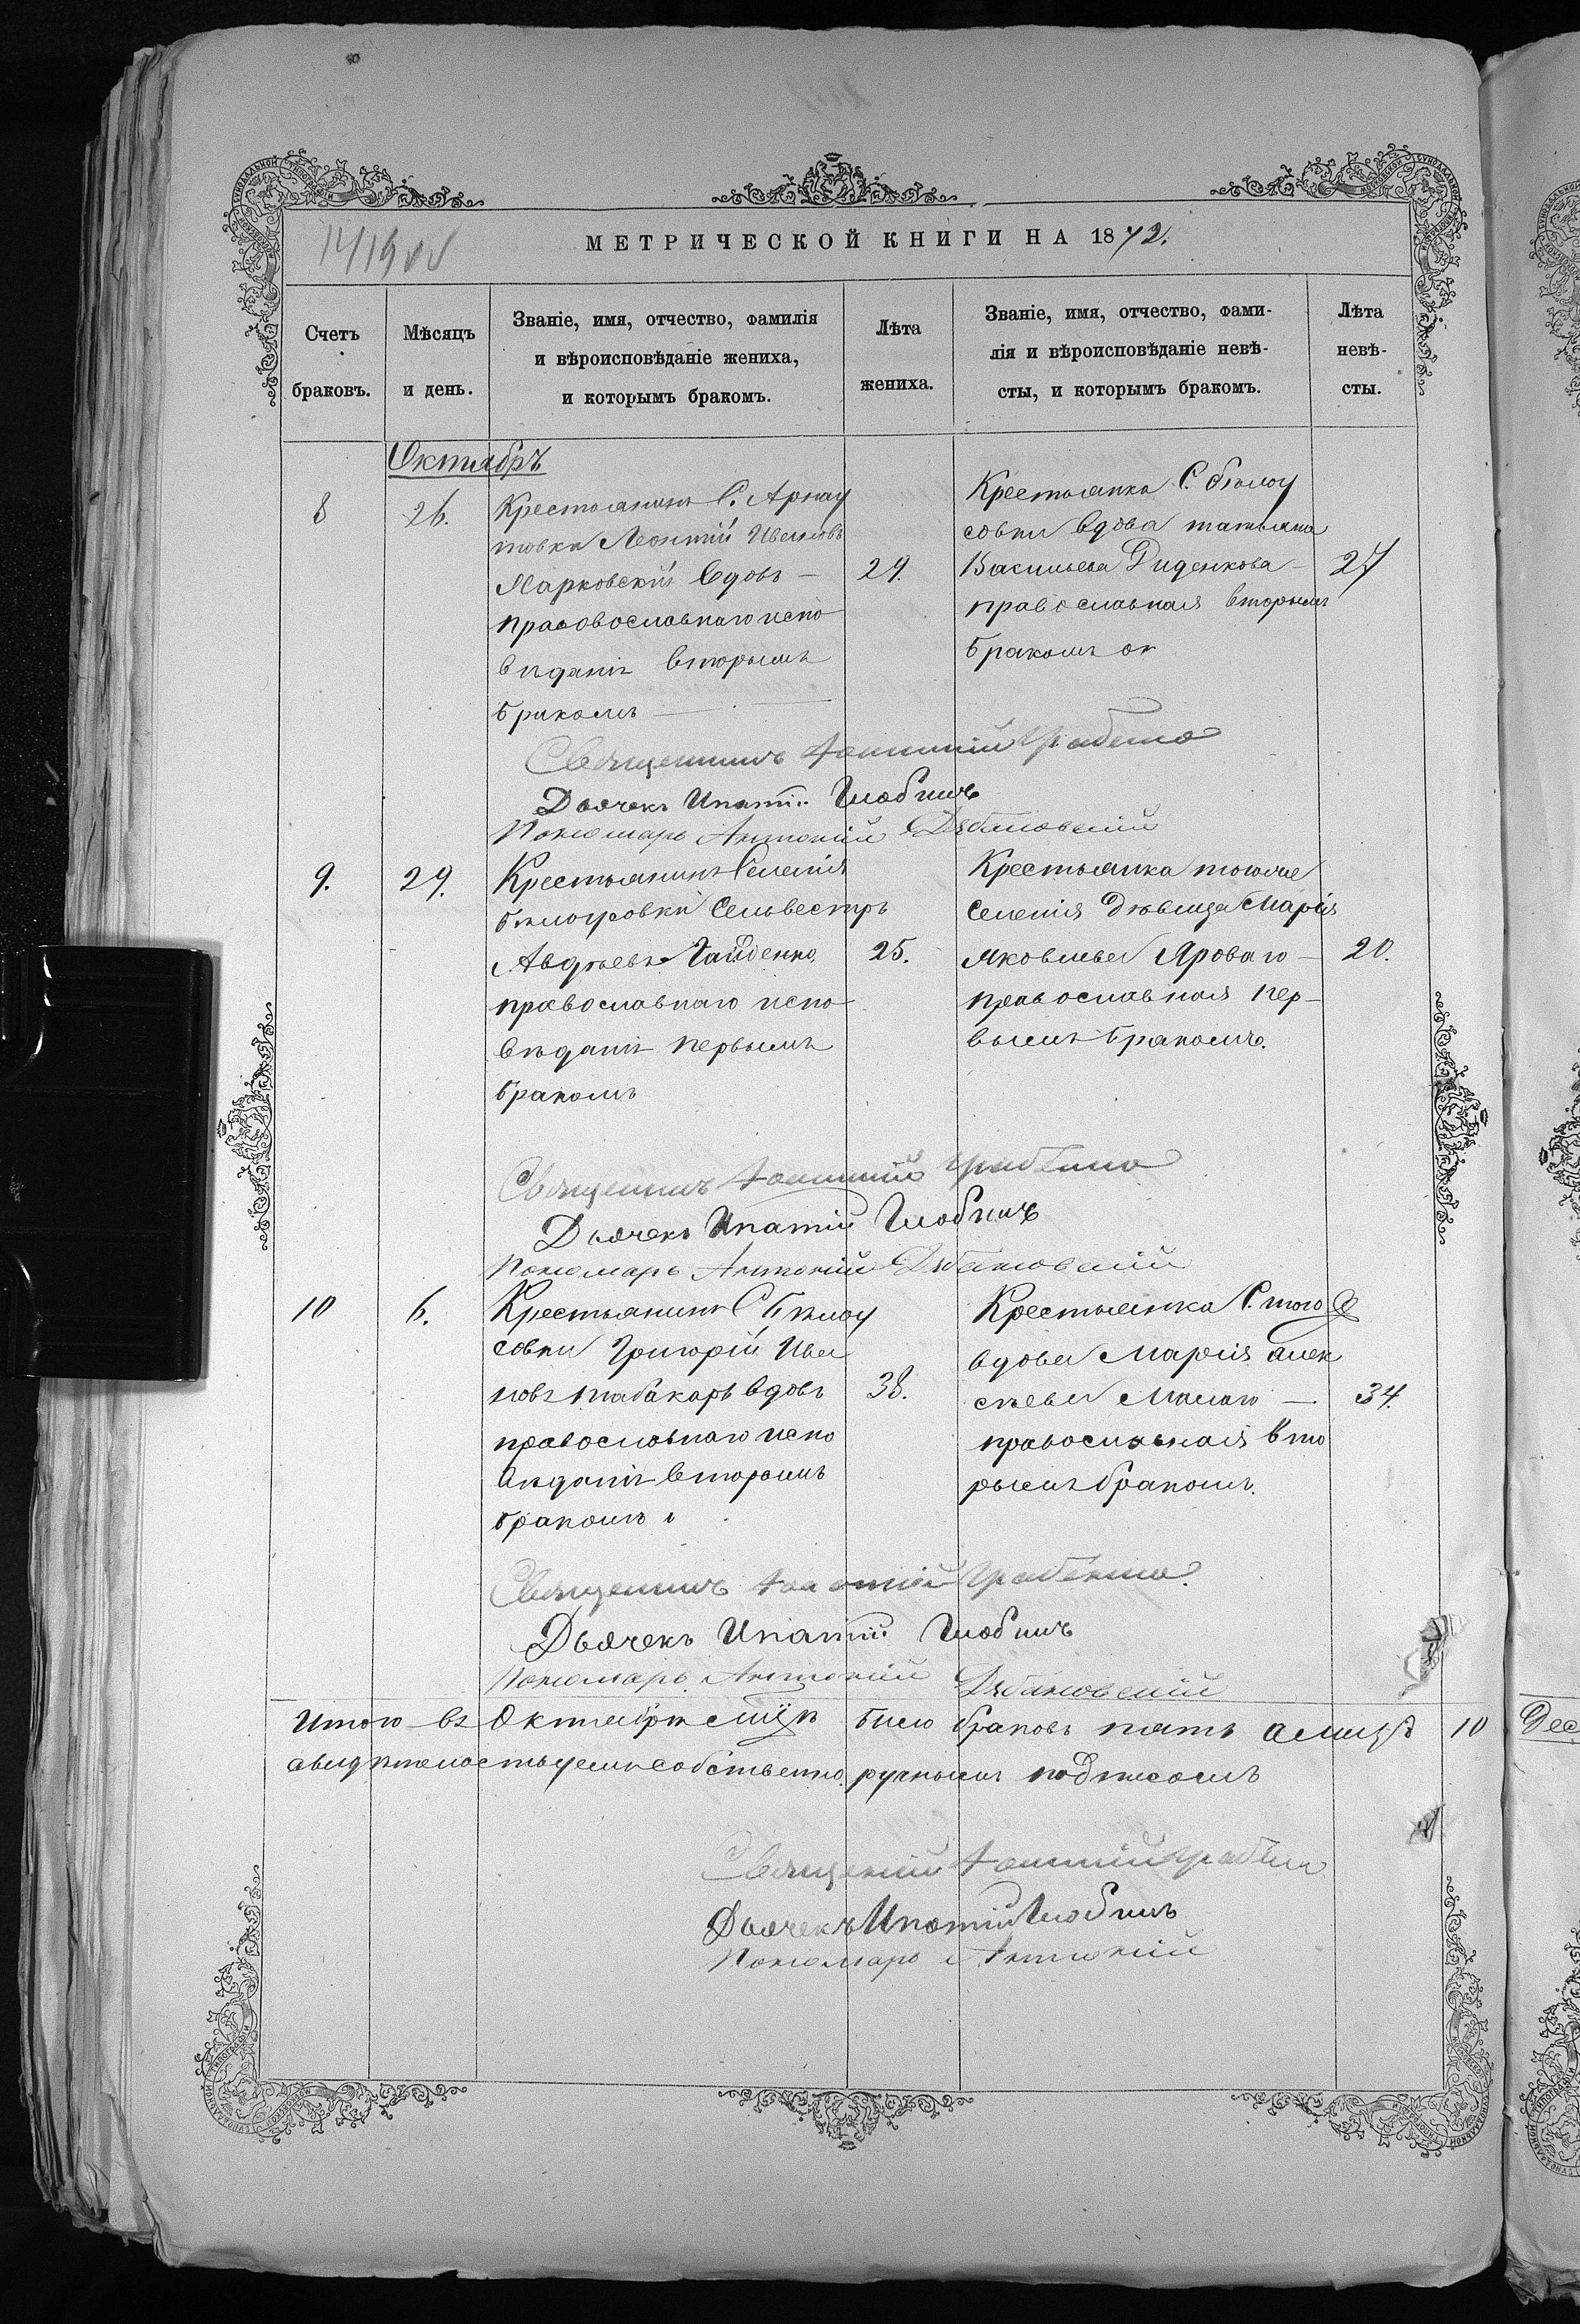 МЕТРИЧЕСКОЙ КНИГИ НА 1872.
Счетъ браковъ.
Мѣсяцъ и день.
Званіе, имя, отчество, фамилія
и вѣроисповѣданіе жениха,
и которымъ бракомъ.
Лѣта жениха.
Званіе, имя, отчество, фами-
лія и вѣроисповѣданіе невѣ-
сты, и которымъ бракомъ.
Лѣта невѣ-
сты.
Октябръ
8
26.
Крестьянинъ С. Арнау
товки Леонтій Ивановъ
Марковскій вдовъ —
правовославнаго испо
вѣданія вторымъ
бракомъ —
29.
Крестьянка С. бѣлоу
совки вдова татьяна
Васильева Диденкова —
православная вторымъ
бракомъ
27
Священникъ Грабенко
Дьячекъ Ипатій
Пономарь Антоній
9.
29.
Крестьянинъ Селенія
бѣлоусовки Сельвестръ
Авдѣевъ Гайденко
православнаго испо
вѣданія первымъ
бракомъ
25.
Крестьянка тогоже
Селенія Дѣвица Марія
Яковлева Яроваго —
православная пер-
вымъ бракомъ.
20.
Священникъ Грабенко
Дьячекъ Ипатій
Пономарь Антоній
10
6.
Крестьянинъ С бѣлоу
совки Григорій Ива
новъ табакарь вдовъ
православнаго испо
вѣданія вторымъ
бракомъ
38.
Крестьянка С. того
вдова Марія алек
сѣева Малаго —
православная вто
рымъ бракомъ.
34.
Священникъ Грабенко
Дьячекъ Ипатій
Пономарь Антоній
Итого въ Октябрѣ было браковъ пять
10
собственно ручнымъ подписомъ
Дьячекъ Ипатій
Пономарь Антоній
Дес